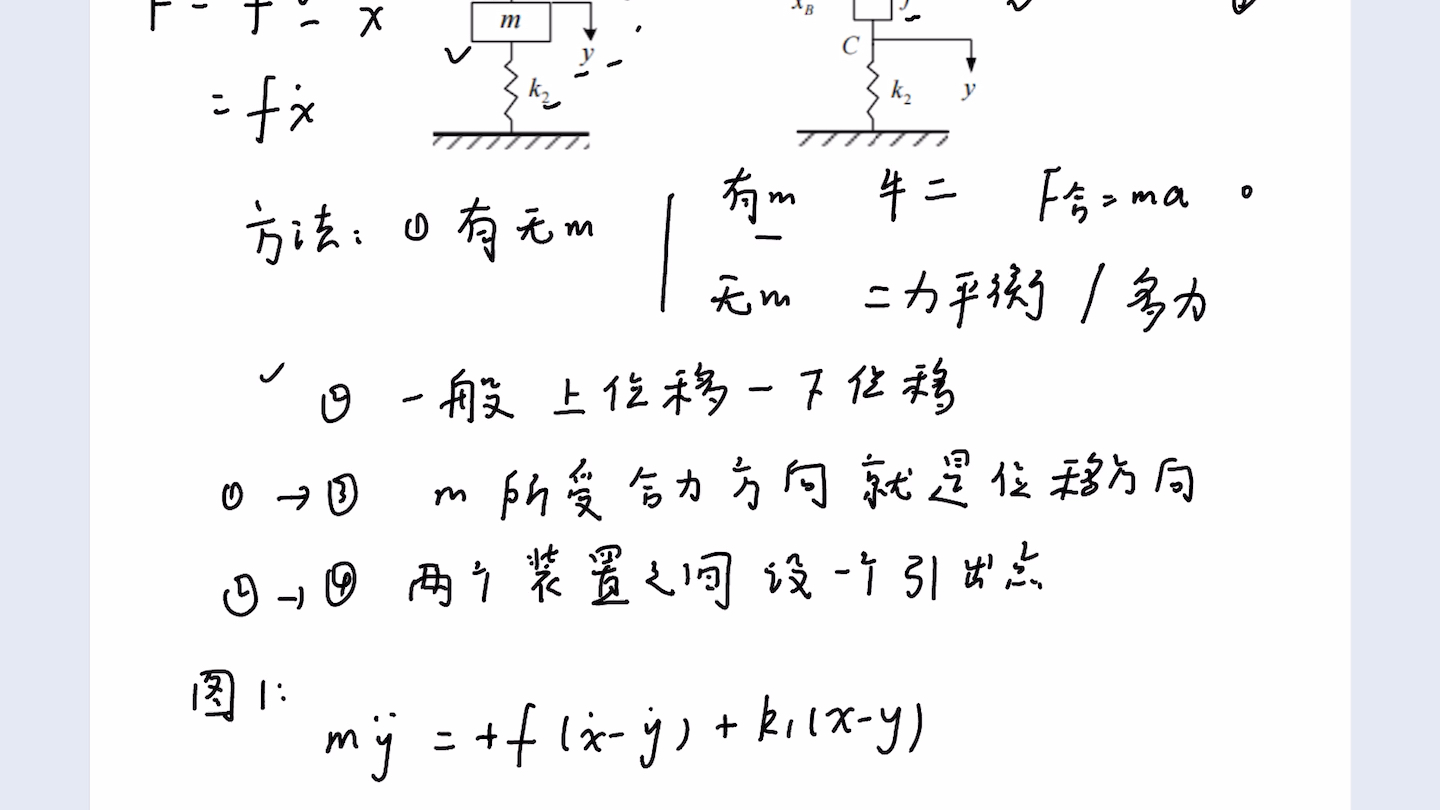 m
y
k₂
x_B
C
y
k₂
= fẋ
方法: ① 有无m
有m 牛二 F合=ma
无m 二力平衡 / 多力
② 一般 上位移－下位移
① → ③ m 所受合力方向就是位移方向
② → ④ 两个装置之间设一个引出点
图1:
mÿ = +f(ẋ-ẏ) + k₁(x-y)